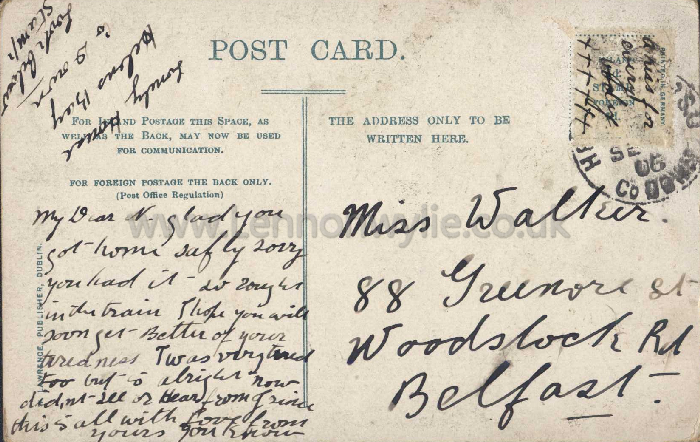 Look below
stamp
Lonely House
Helens Bay
Co Down
POST CARD.
FOR INLAND POSTAGE THIS SPACE, AS
WELL AS THE BACK, MAY NOW BE USED
FOR COMMUNICATION.
FOR FOREIGN POSTAGE THE BACK ONLY.
(Post Office Regulation)
THE ADDRESS ONLY TO BE
WRITTEN HERE.
a kiss for
every
My Dear N. glad you
got home safly sorry
you had it so rought
in the train I hope you will
soon get Better of your
tiredness I was very tired
too but is alright now
did,nt see or Hear from
this is all with Love from
yours you know
Miss Walker.
88 Greenore St
Woodstock Rd
Belfast.
LAWRENCE, PUBLISHER, DUBLIN.
www.lennonwylie.co.uk